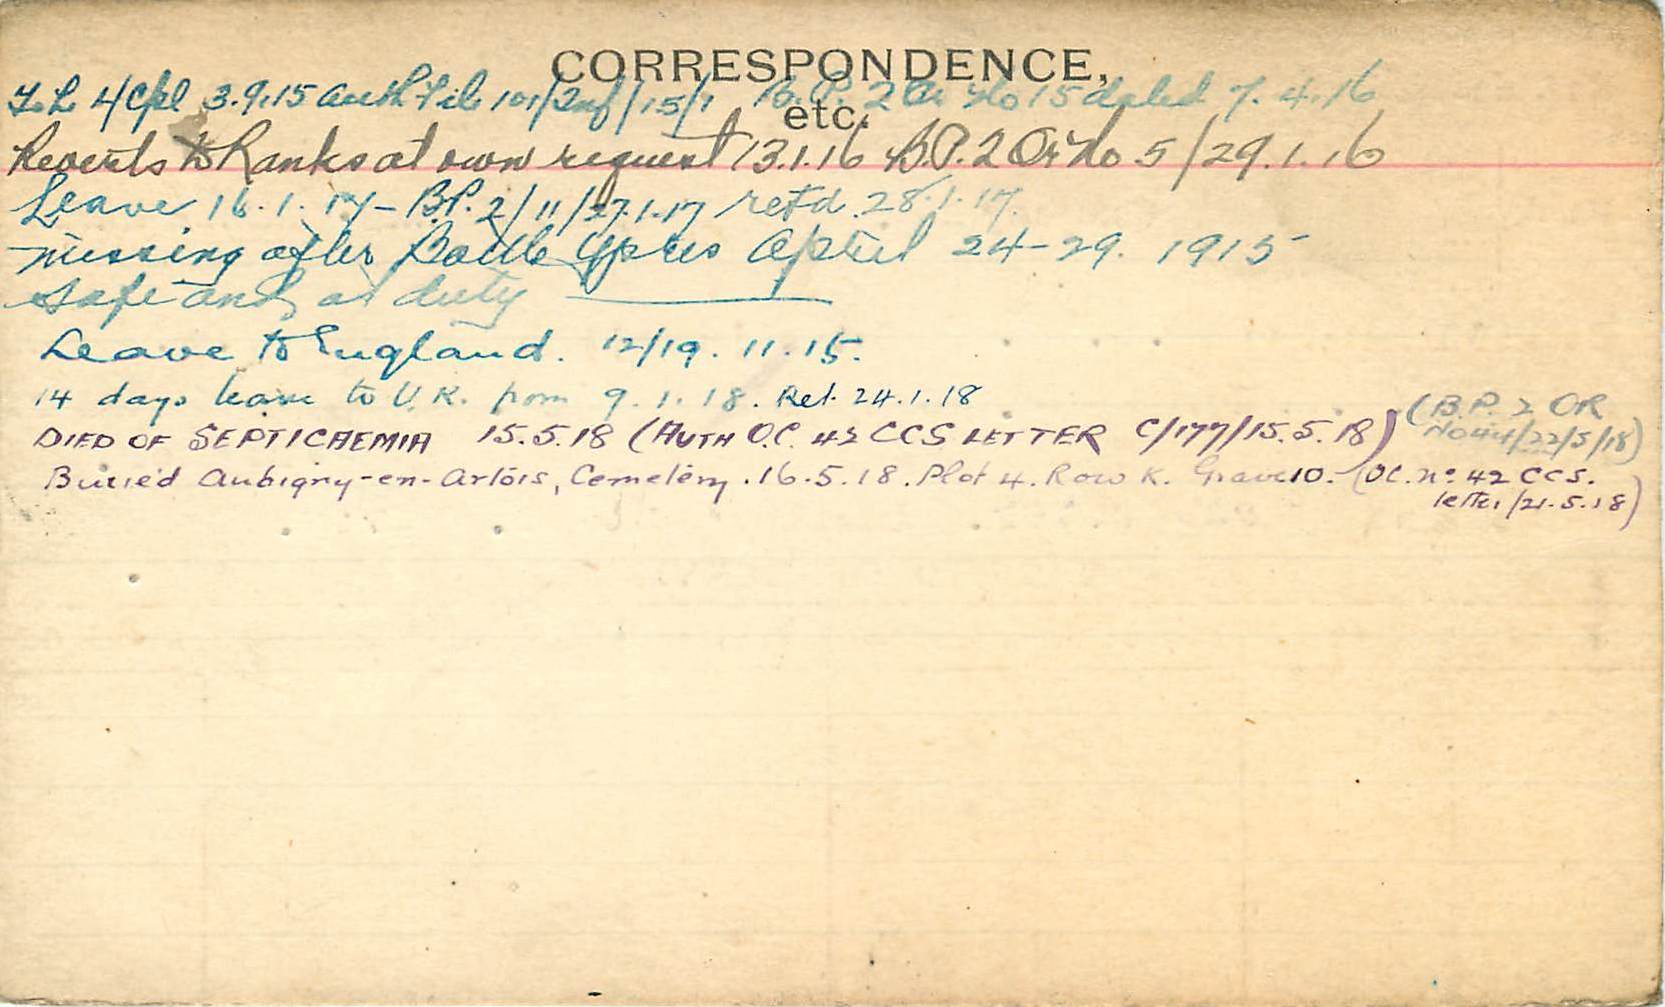 CORRESPONDENCE,
etc.
L/Cpl 3.9.15 Auth File 101/Inf/15/1 B.P. 2 Or No 15 dated 7.4.16
Reverts to Ranks at own request 13.1.16 B.P. 2 Or No 5/29.1.16
Leave 16.1.17 - B.P. 2/11/27.1.17 ret'd 28.1.17.
Missing after Battle Ypres April 24-29. 1915
Safe and at duty
Leave to England. 12/19.11.15.
14 days leave to U.K. from 9.1.18. Ret. 24.1.18
DIED OF SEPTICAEMIA 15.5.18 (AUTH O.C. 42 CCS LETTER C/177/15.5.18) (B.P. 2 OR
No 44/22/5/18)
Buried Aubigny-en-Artois, Cemetery. 16.5.18. Plot 4. Row K. Grave 10. (OC. No 42 CCS.
letter/21.5.18)